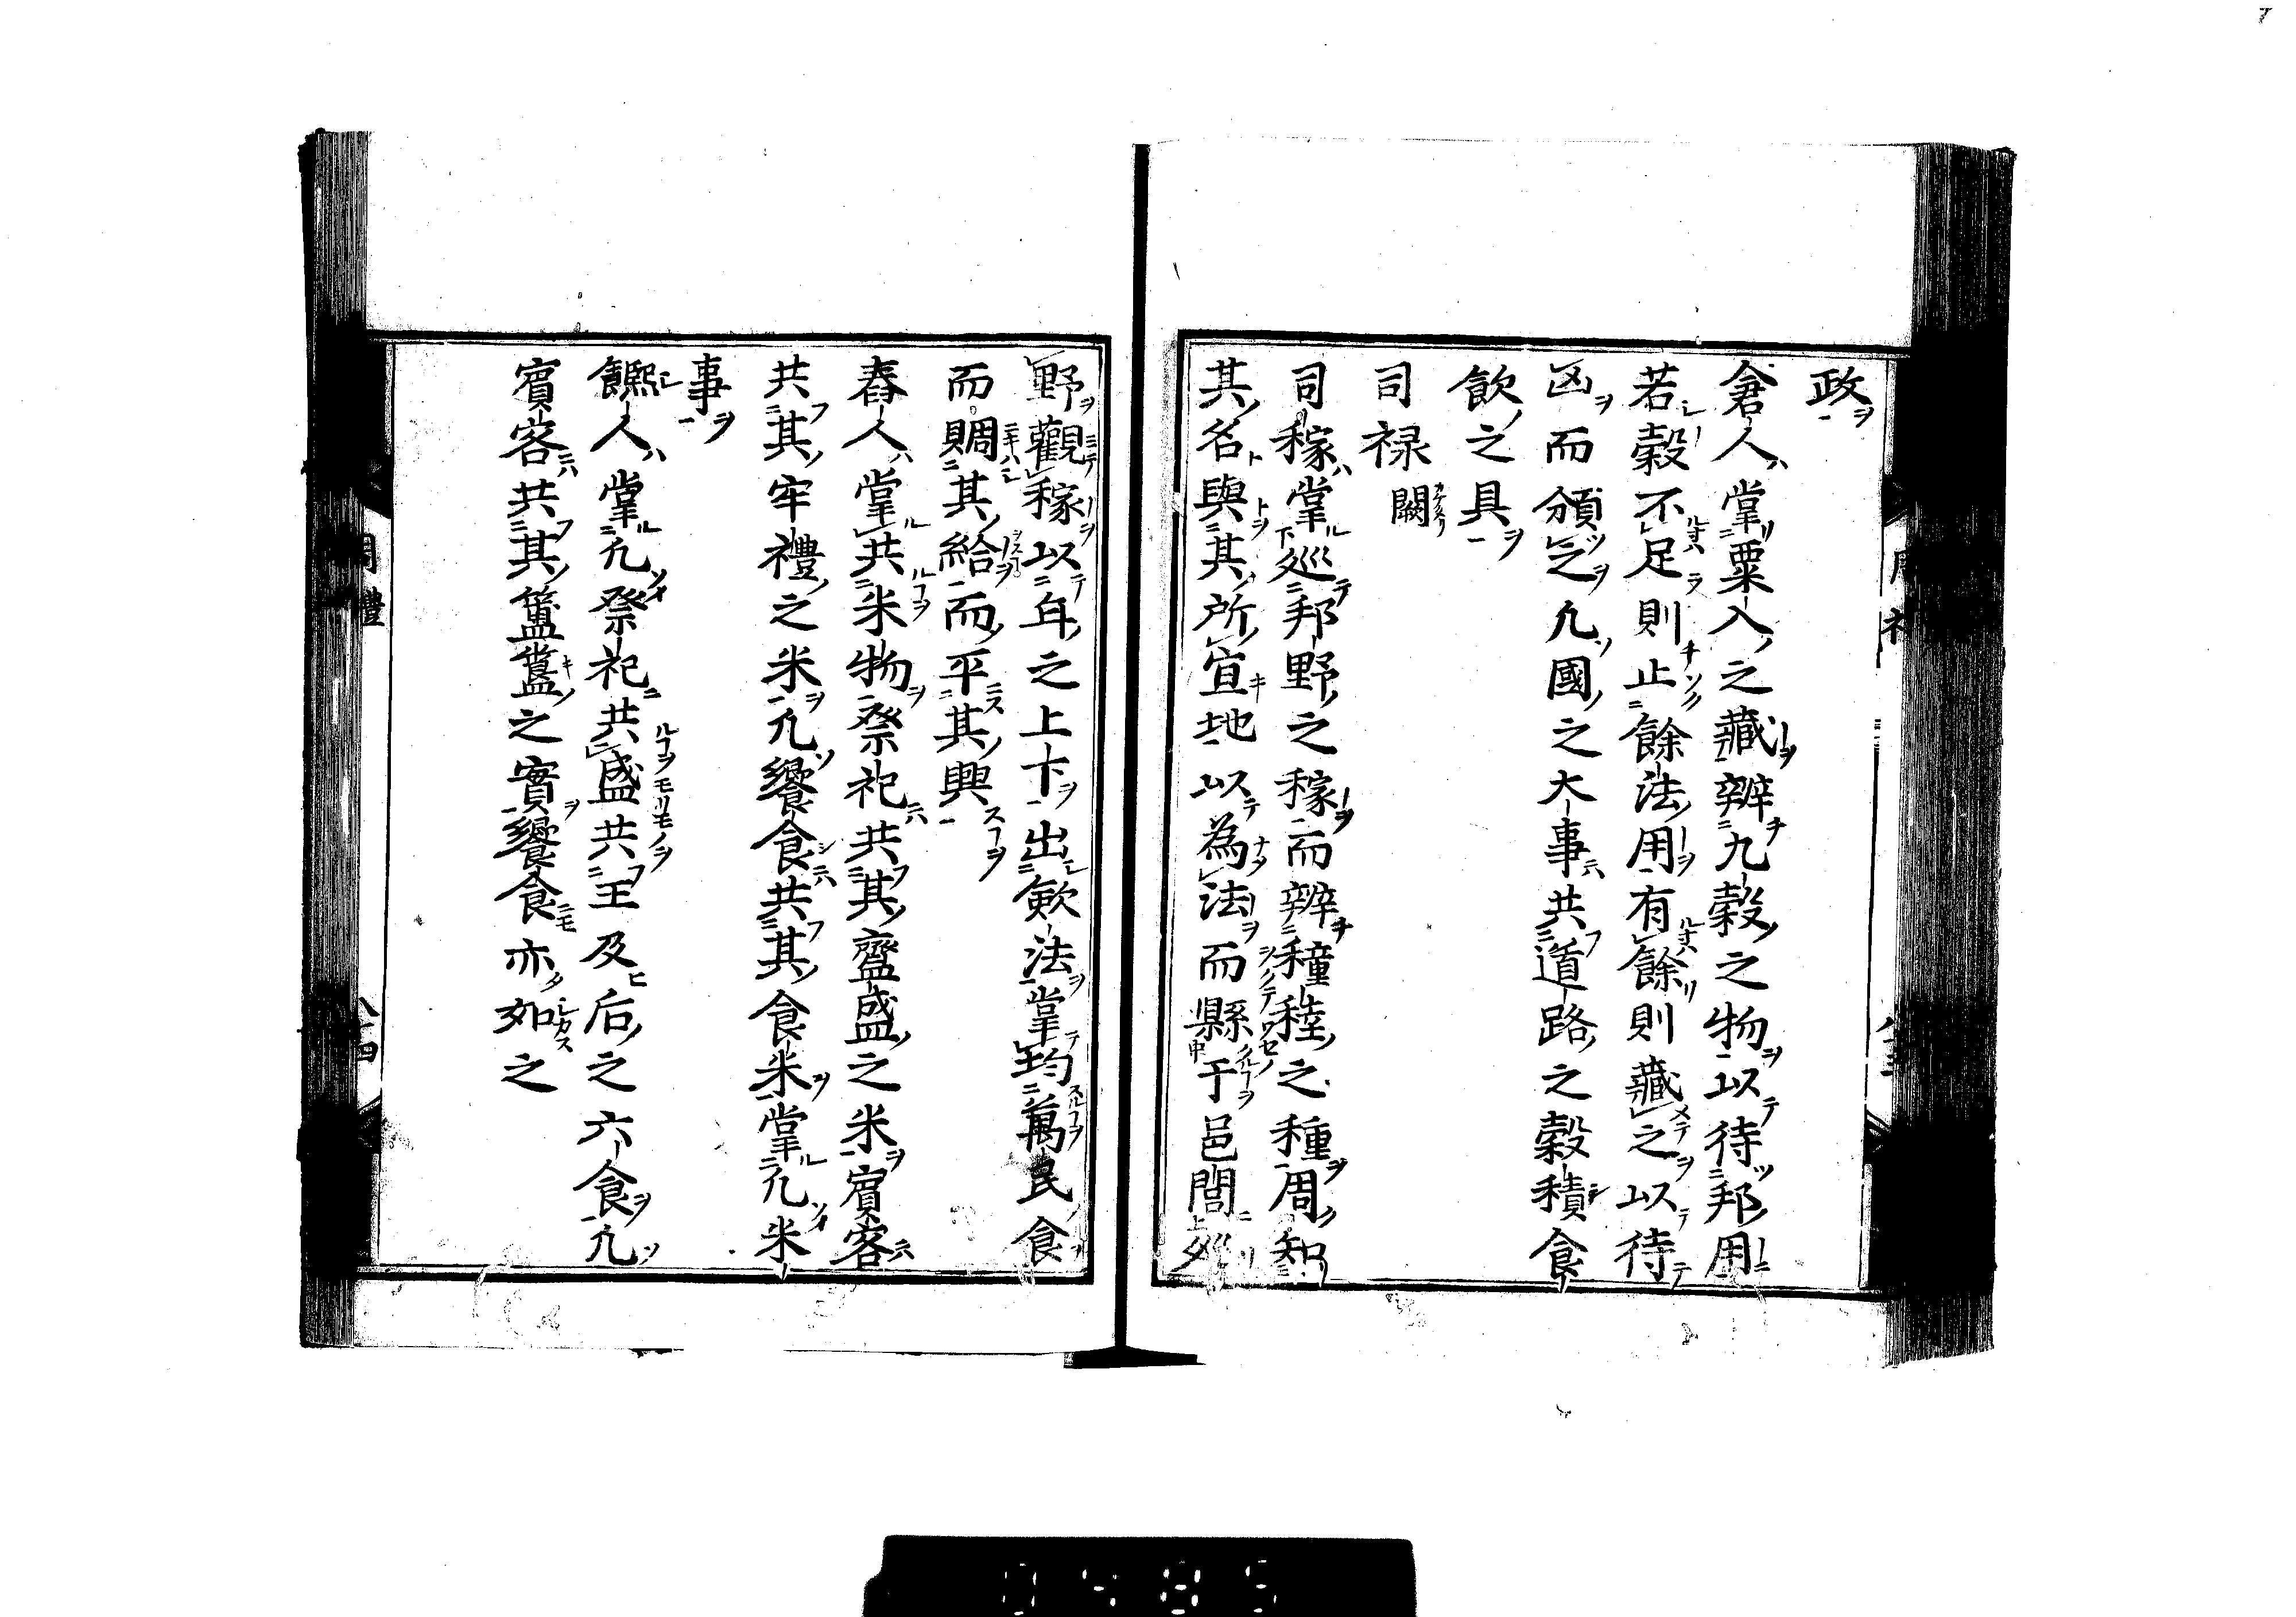 政
倉人掌粟入之藏辨九穀之物以待邦用
若穀不足則止餘法用有餘則藏之以待
凶而頒之凢國之大事共道路之穀積食
飲之具
司禄 闕
司稼掌巡邦野之稼而辨穜稑之種周知
其名與其所宜地以為法而縣于邑閭巡
野觀稼以年之上下出歛法掌均萬民食
而賙其給而平其興
舂人掌共米物祭祀共其齍盛之米賓客
共其牢禮之米凢饗食共其食米掌凢米
事
饎人掌凢祭祀共盛共王及后之六食凢
賓客共其簠簋之實饗食亦如之
周禮
0485